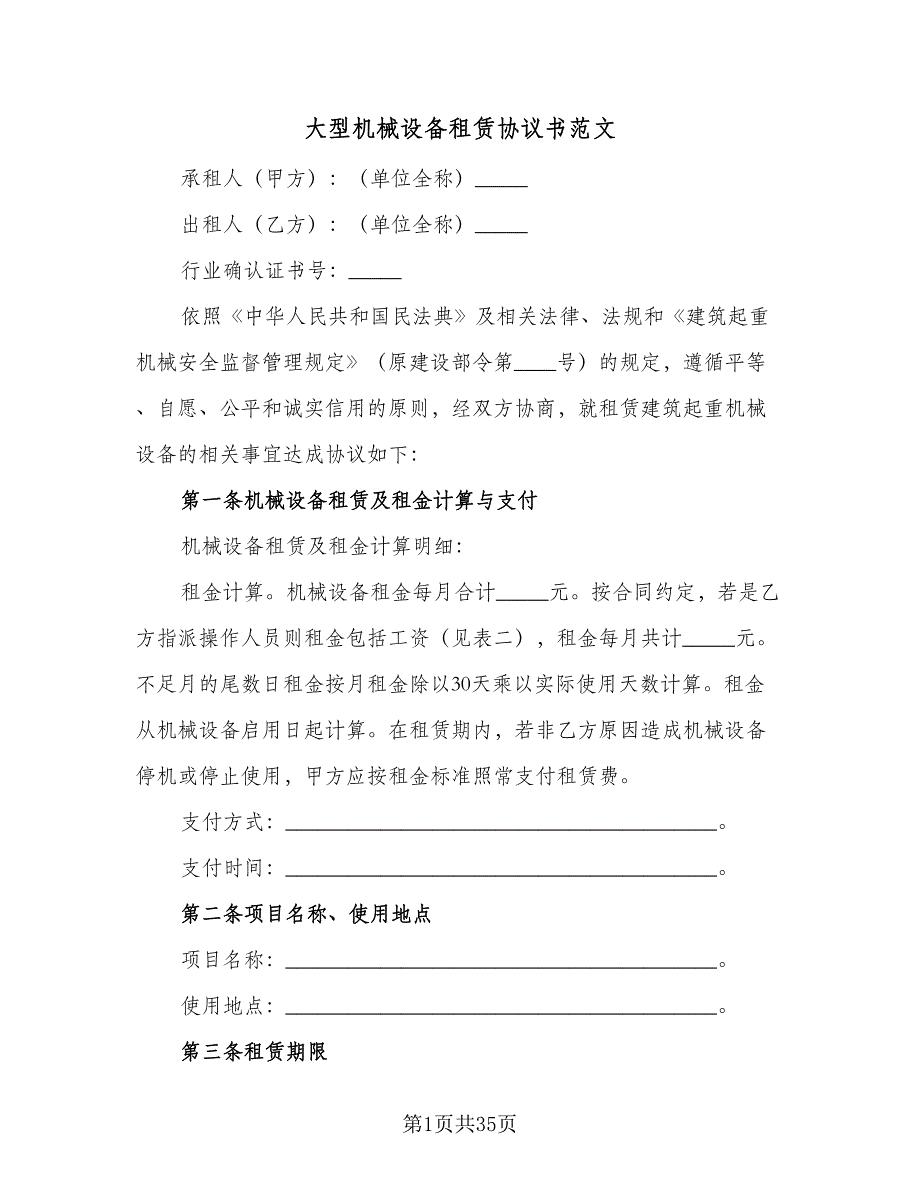 大型机械设备租赁协议书范文
承租人（甲方）：（单位全称）_____
出租人（乙方）：（单位全称）_____
行业确认证书号：_____
依照《中华人民共和国民法典》及相关法律、法规和《建筑起重
机械安全监督管理规定》（原建设部令第____号）的规定，遵循平等
、自愿、公平和诚实信用的原则，经双方协商，就租赁建筑起重机械
设备的相关事宜达成协议如下：
第一条机械设备租赁及租金计算与支付
机械设备租赁及租金计算明细：
租金计算。机械设备租金每月合计_____元。按合同约定，若是乙
方指派操作人员则租金包括工资（见表二），租金每月共计_____元。
不足月的尾数日租金按月租金除以30天乘以实际使用天数计算。租金
从机械设备启用日起计算。在租赁期内，若非乙方原因造成机械设备
停机或停止使用，甲方应按租金标准照常支付租赁费。
支付方式：_________________________________________。
支付时间：_________________________________________。
第二条项目名称、使用地点
项目名称：_________________________________________。
使用地点：_________________________________________。
第三条租赁期限
第1页共35页